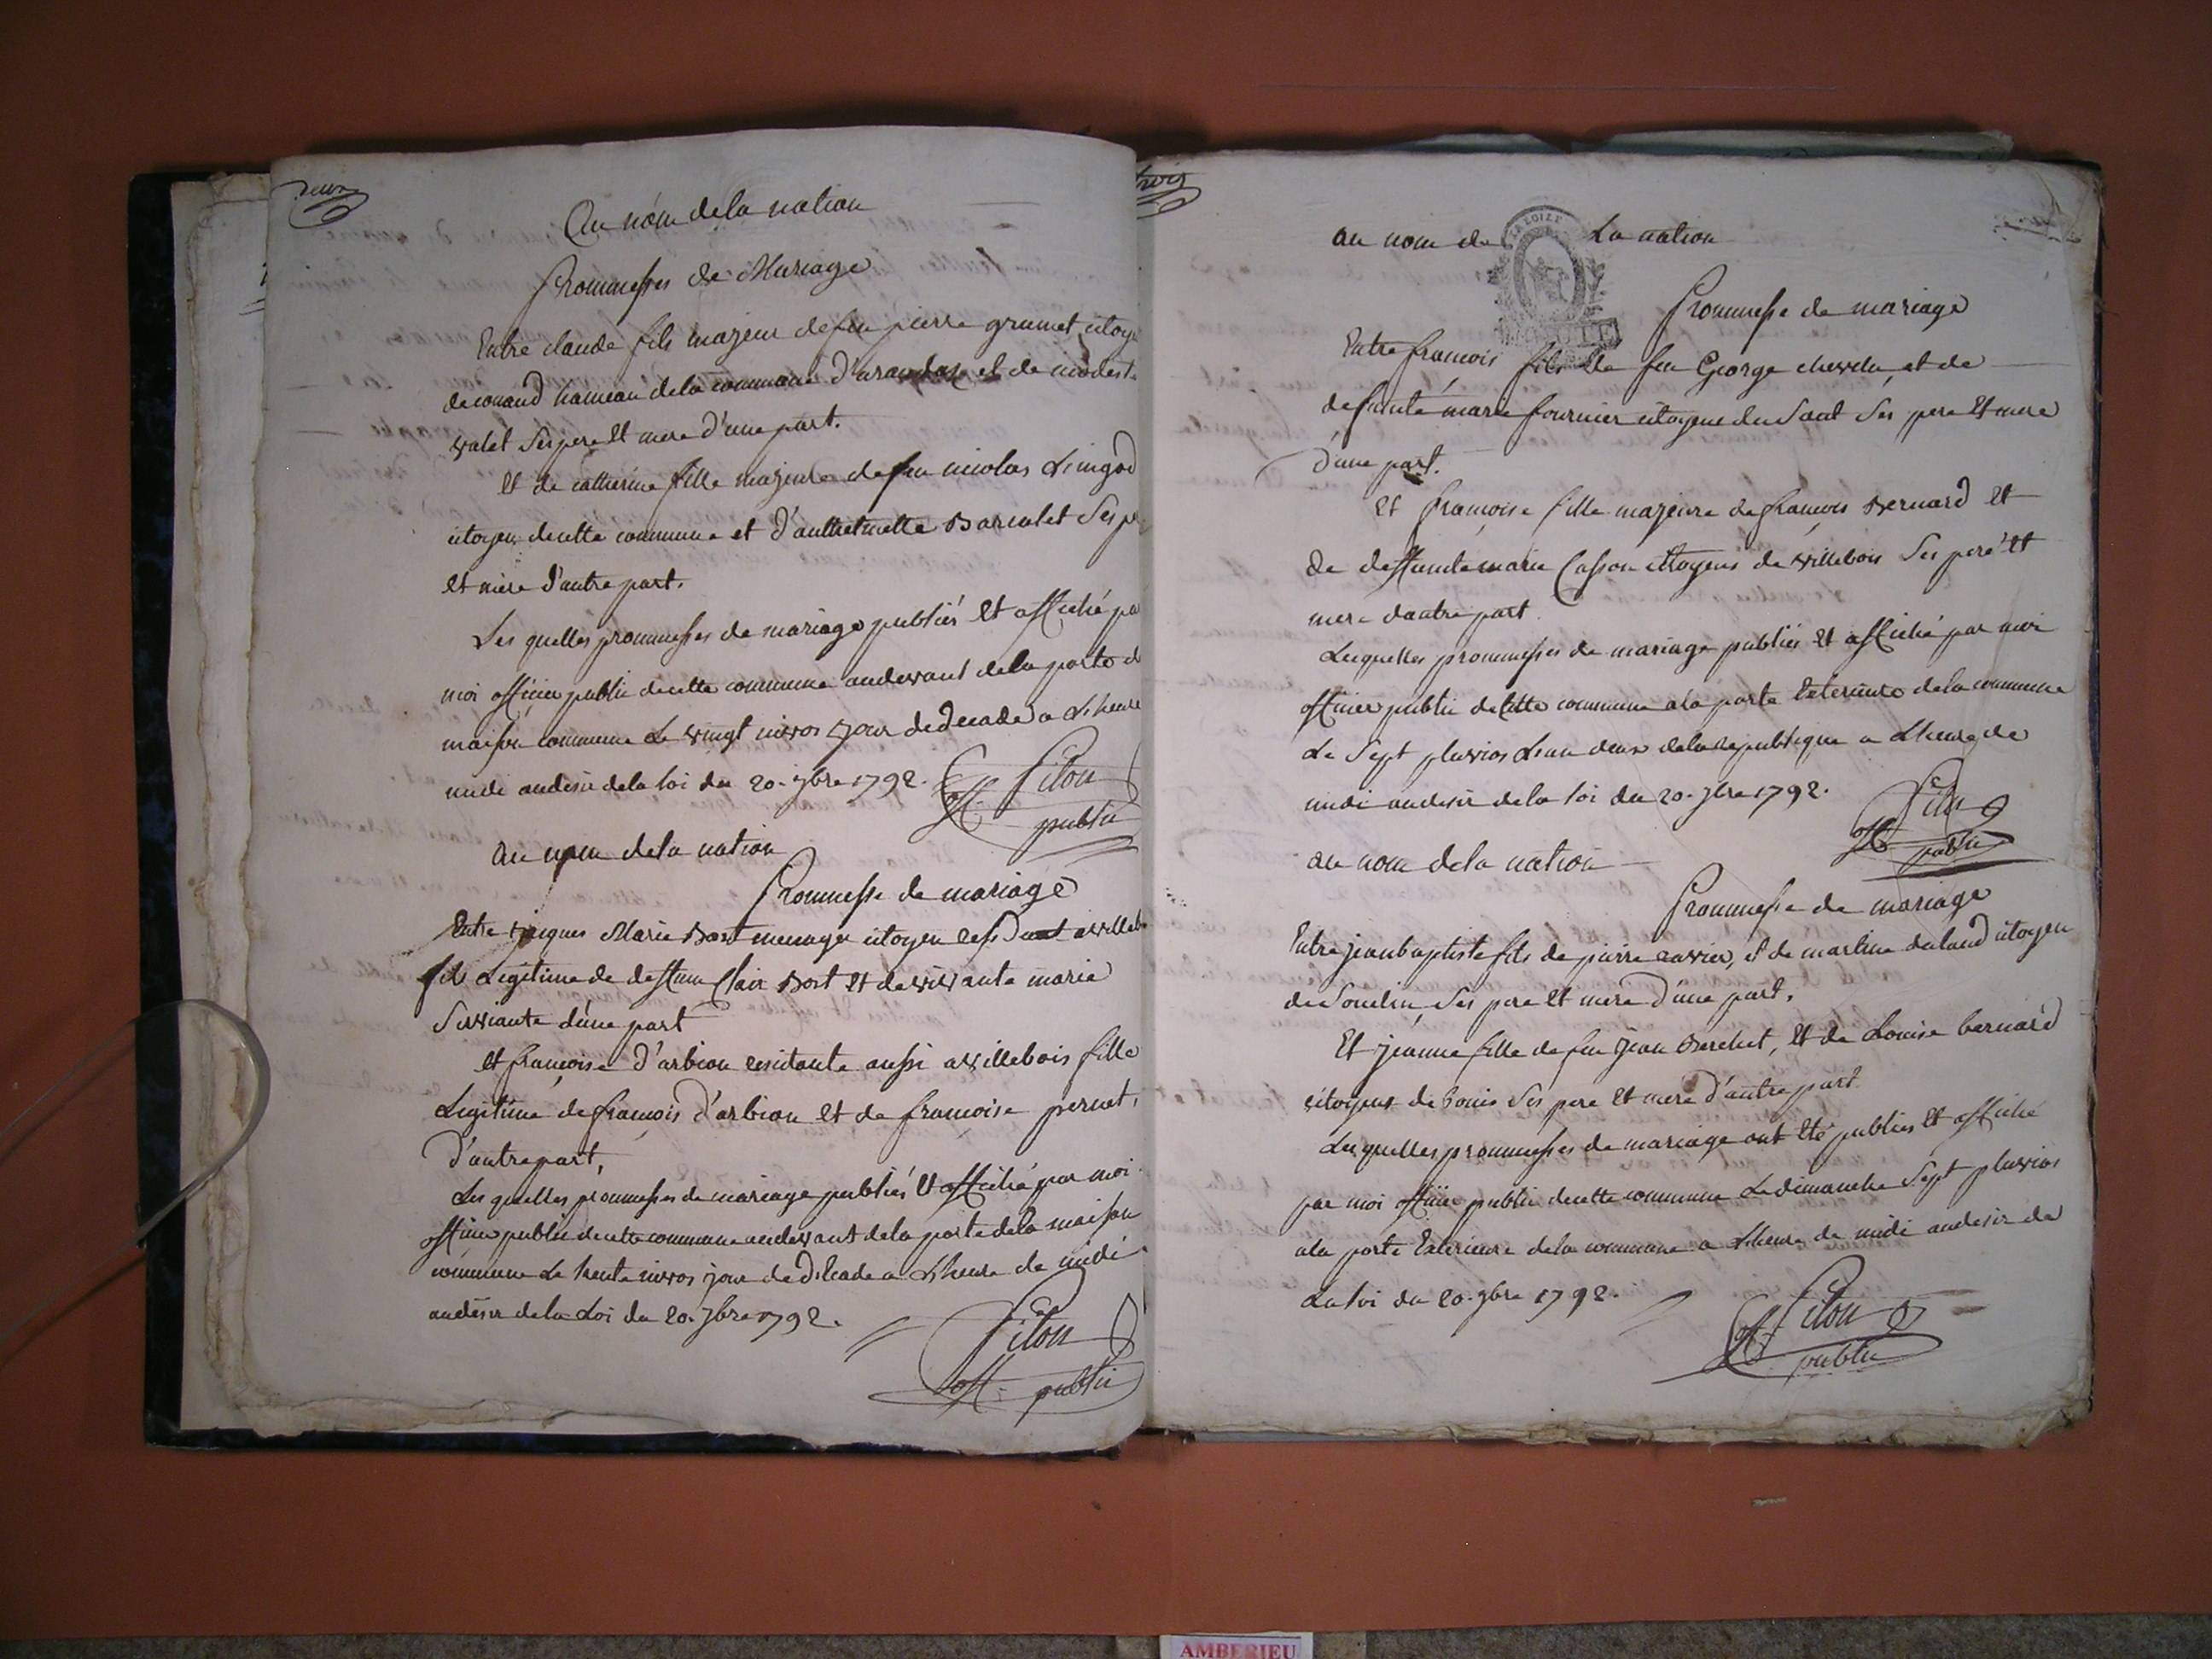 deux
Au nom de la nation
Prommesses de Mariage
Entre claude fils majeur de feu pierre grumet citoye
de conand hameau de la commune d'arandas et de modeste
valet Ses pere Et mere d'une part.
Et de catherine fille majeure de feu nicolas
citoyen de cette commune et d'anthelmette Barculet Ses pe
et mere d'autre part.
Les quelles prommesses de mariage publiés Et affiché pa
moi officier public de cette commune audevant de la porte d
maison commune Le vingt nivos jour de Decade a L'heure
midi audesir de la loi du 20. 7bre 1792. Piton
off. public
au nom de la nation
Prommesse de mariage
Entre jacques Marie Bost menager citoyen a villeb
fils Legitime de deffun Clair Bost Et de vivante marie
d'une part
et françoise d'arbion residante aussi a villebois fille
Legitime de françois d'arbion Et de françoise pernet,
D'autre part,
Les quelles prommesses de mariage publiés Et affiché par moi
officier public de cette commune audevant de la porte de la maison
commune Le trente nivos jour de Décade a L'heure de midi
audésir de la Loi du 20. 7bre 1792.
Piton
off. public
trois
au nom de La nation
Prommesse de mariage
Entre francois fils de feu George et de
defunte marie fournier citoyens du Saut Ses pere Et mere
D'une part.
Et françoise fille majeure de françois Bernard Et
de deffunte marie Casson citoyens de villebois Ses pere Et
mere dautre part
Lesquelles prommesses de mariage publiés Et affiché par moi
officier public de Cette commune a la porte Exterieure de la commune
Le Sept pluvios L'an deux de la republique a L'heure de
midi audesir de la loi du 20. 7bre 1792.
Piton
off. public
au nom de la nation
Prommesse de mariage
Entre jean baptiste fils de pierre cavier, et de martine duland citoyen
de Souclin, Ses pere Et mere D'une part.
Et jeanne fille de feu jean Berchet, Et de Louise bernard
citoyens de bouis Ses pere Et mere d'autre part
Lesquelles prommesses de mariage ont Eté publiés Et affiché
par moi officier public de cette commune Le dimanche Sept pluvios
a la porte Exterieure de la commune a L'heure de midi audesir de
La loi du 20. 7bre 1792.
Piton
off. public
AMBERIEU